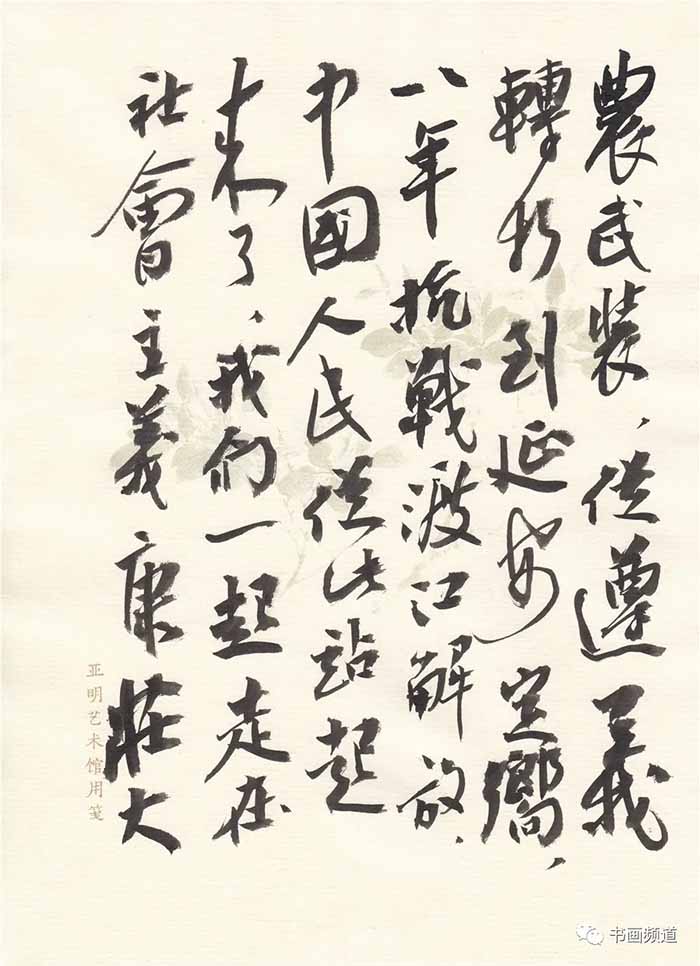 農武裝，從遵義
轉折到延安定嚮，
八年抗戰渡江解放，
中國人民從此站起
来了，我们一起走在
社會主義康莊大
亚明艺术馆用笺
书画频道